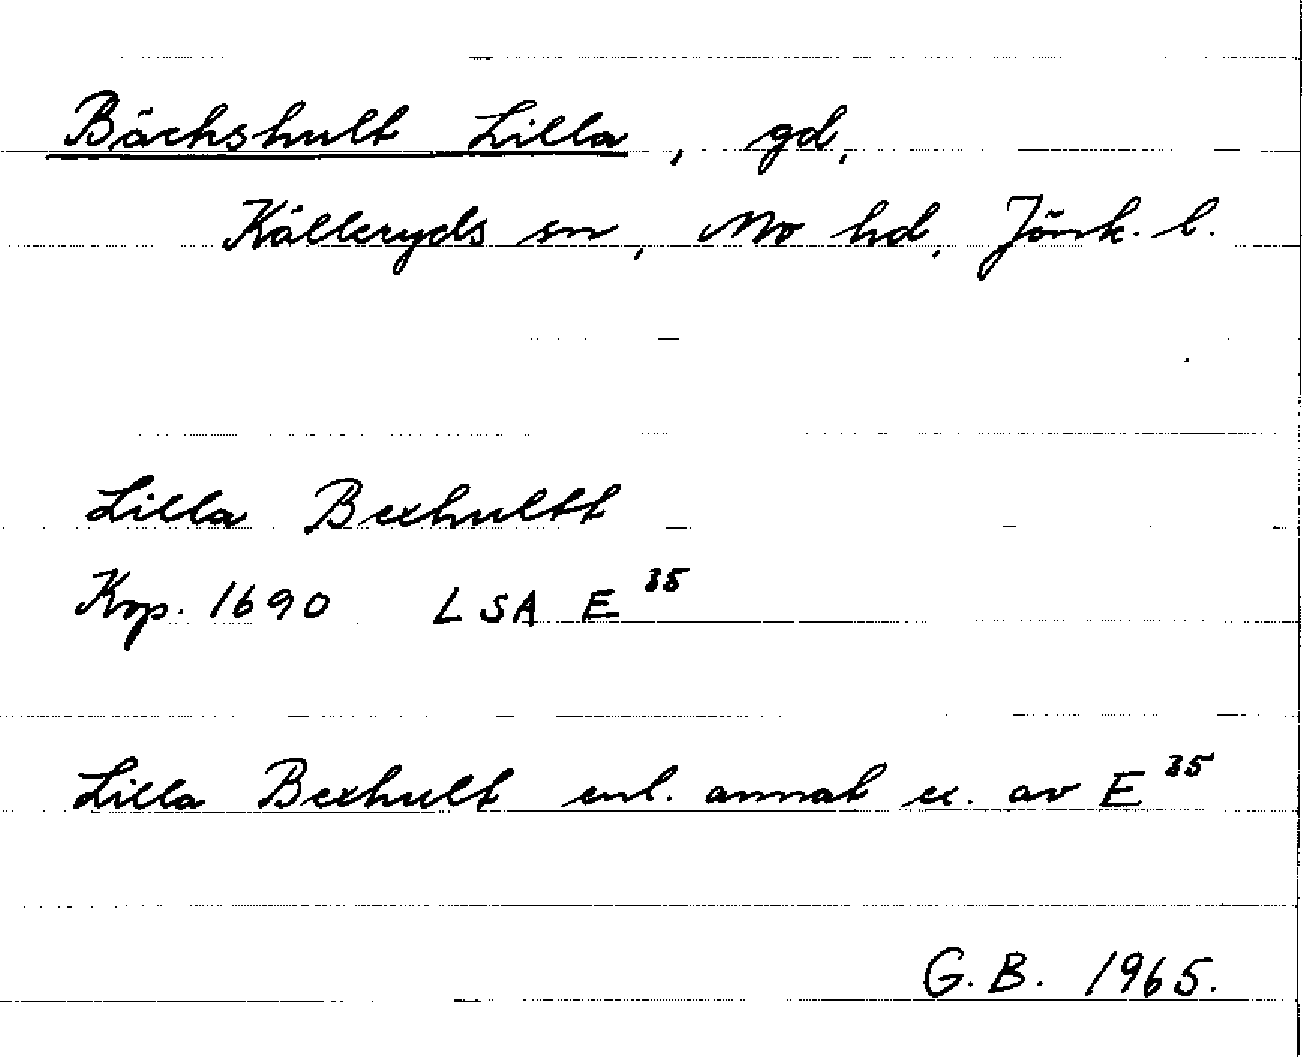 Bäckshult Lilla, gd,
Källeryds sn, Mo hd, Jönk. l.
Lilla Bexhultt
Kop. 1690 LSA E 35
Lilla Bexhult enl. annat ex. av E 35
G.B. 1965.